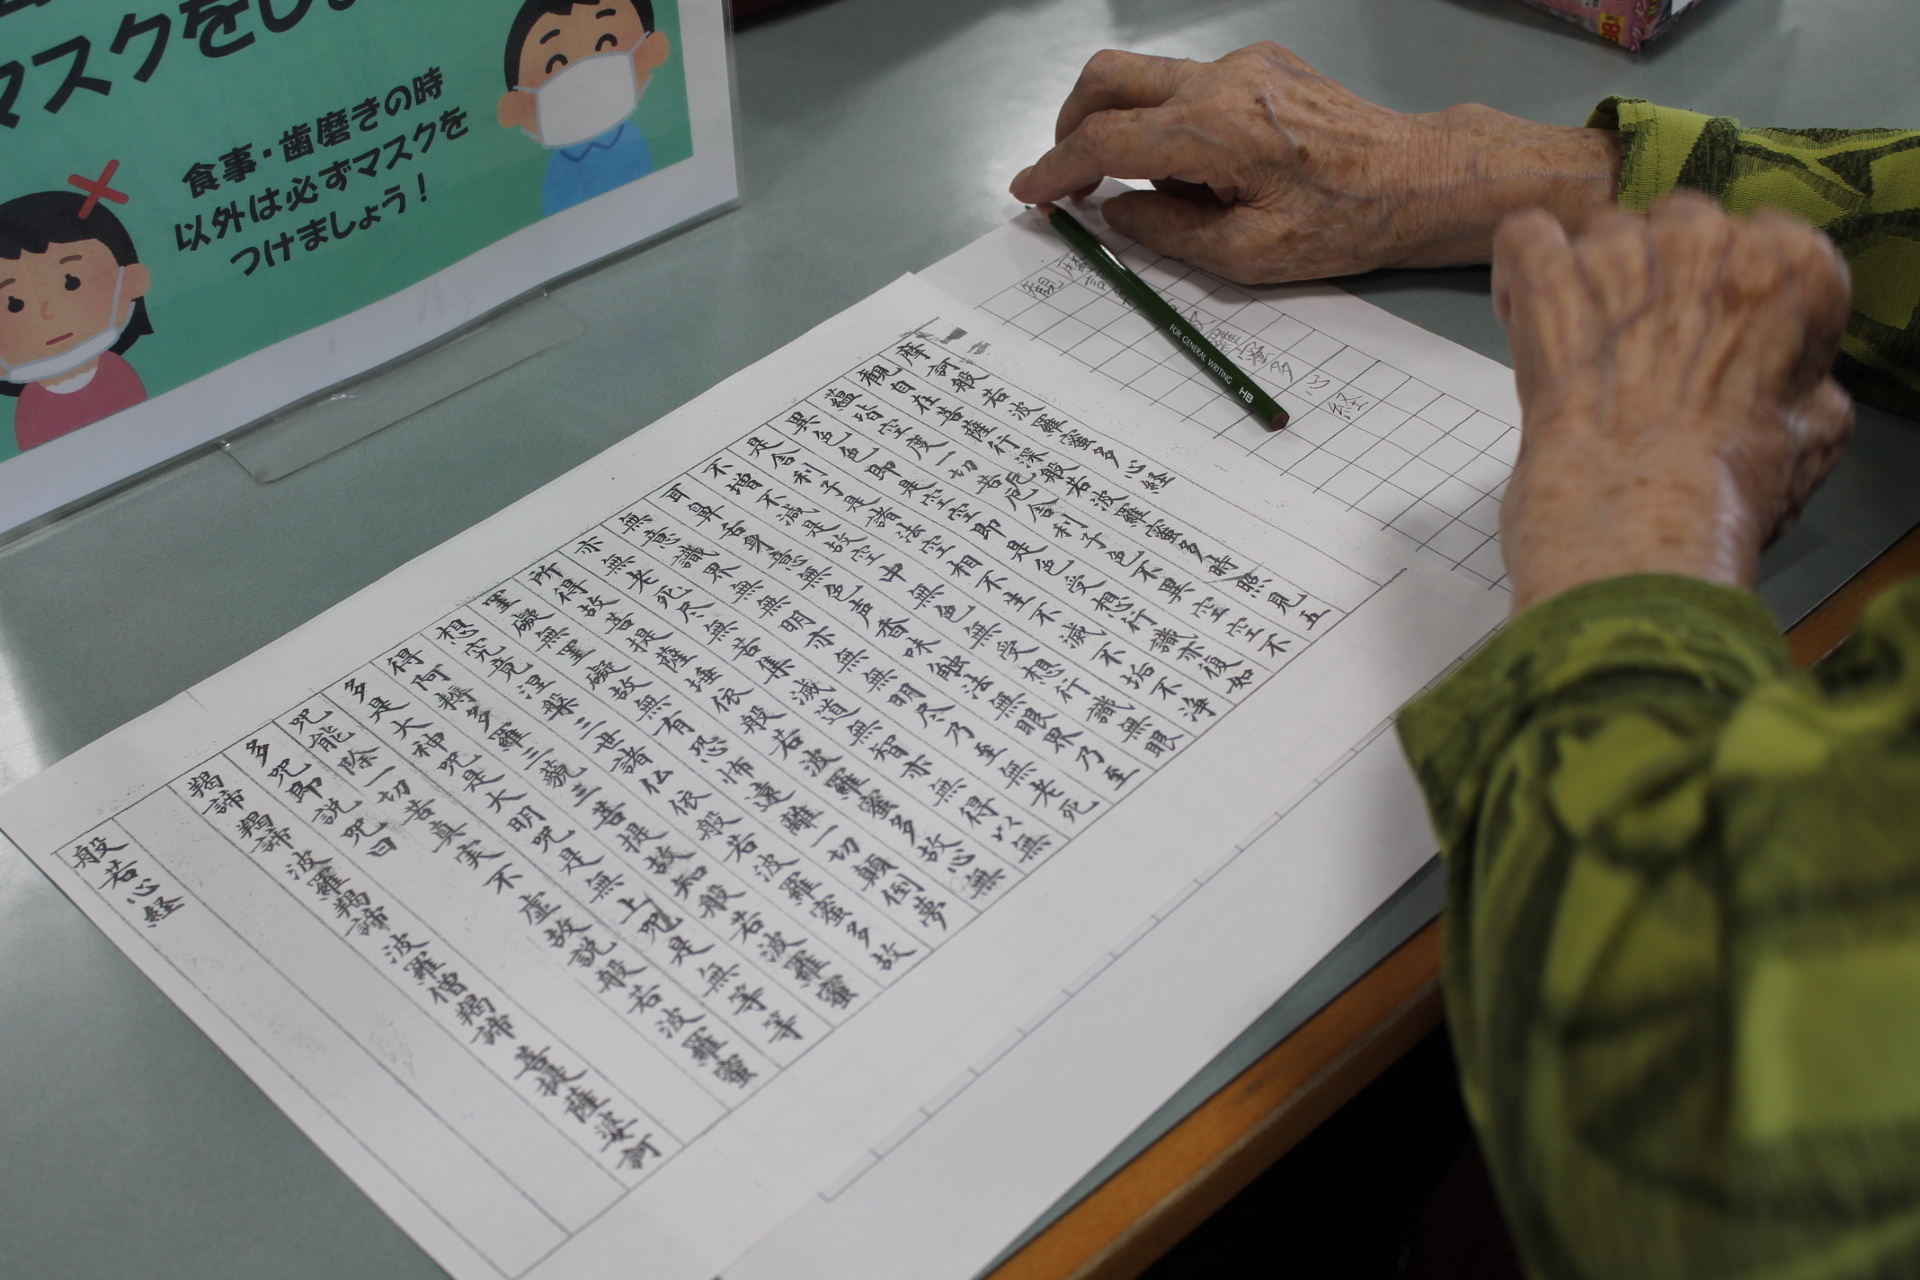 マスクをし
食事・歯磨きの時
以外は必ずマスクを
つけましょう！
摩訶
羅蜜多心経
観
FOR GENERAL WRITING HB
摩訶般若波羅蜜多心経
観自在菩薩行深般若波羅蜜多時照見五
蘊皆空度一切苦厄舎利子色不異空空不
異色色即是空空即是色受想行識亦復如
是舎利子是諸法空相不生不滅不垢不浄
不増不減是故空中無色無受想行識無眼
耳鼻舌身意無色声香味触法無眼界乃至
無意識界無無明亦無無明尽乃至無老死
亦無老死尽無苦集滅道無智亦無得以無
所得故菩提薩埵依般若波羅蜜多故心無
罣礙無罣礙故無有恐怖遠離一切顛倒夢
想究竟涅槃三世諸仏依般若波羅蜜多故
得阿耨多羅三藐三菩提故知般若波羅蜜
多是大神呪是大明呪是無上呪是無等等
呪能除一切苦真実不虚故説般若波羅蜜
多呪即説呪曰
羯諦羯諦波羅羯諦波羅僧羯諦菩提薩婆訶
般若心経